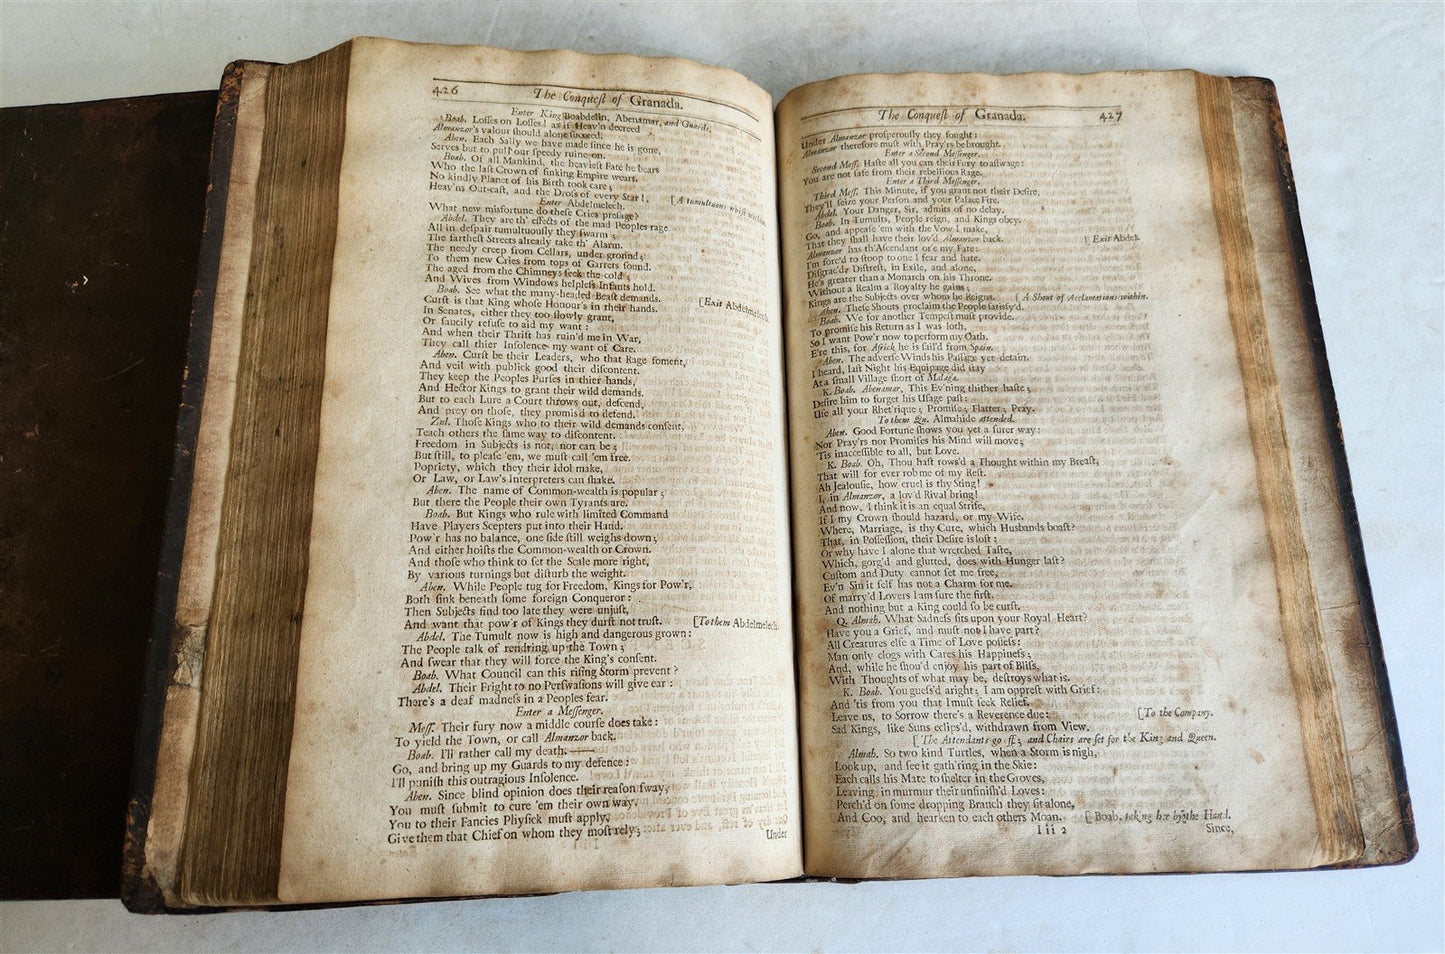 426 The Conqueſt of Granada.
Enter King Boabdelin, Abenamar, and Guards.
Boab. Loſſes on Loſſes! as if Heav'n decreed
Almanzor's valour ſhould alone ſucceed.
Aben. Each Sally we have made ſince he is gone,
Serves but to pull our ſpeedy ruine on.
Boab. Of all Mankind, the heavieſt Fate he bears
Who the laſt Crown of ſinking Empire wears.
No kindly Planet of his Birth took care;
Heav'ns Out-caſt, and the Droſs of every Star!
[A tumultuous noiſe within.
Enter Abdelmelech.
What new misfortune do theſe Cries preſage?
Abdel. They are th' effects of the mad Peoples rage.
All in deſpair tumultuouſly they ſwarm;
The fartheſt Streets already take th' Alarm.
The needy creep from Cellars, under-ground;
To them new Cries from tops of Garrets ſound.
The aged from the Chimneys ſeek the cold;
And Wives from Windows helpleſs Infants hold.
Boab. See what the many-headed Beaſt demands.
[Exit Abdelmelech.
Curſt is that King whoſe Honour's in their hands.
In Senates, either they too ſlowly grant,
Or ſaucily refuſe to aid my want:
And when their Thrift has ruin'd me in War,
They call thier Inſolence my want of Care.
Aben. Curſt be their Leaders, who that Rage foment,
And veil with publick good their diſcontent.
They keep the Peoples Purſes in thier hands,
And Hector Kings to grant their wild demands.
But to each Lure a Court throws out, deſcend,
And prey on thoſe, they promis'd to defend.
Zul. Thoſe Kings who to their wild demands conſent,
Teach others the ſame way to diſcontent.
Freedom in Subjects is not, nor can be;
But ſtill, to pleaſe 'em, we muſt call 'em free.
Popriety, which they their Idol make,
Or Law, or Law's Interpreters can ſhake.
Aben. The name of Common-wealth is popular;
But there the People their own Tyrants are.
Boab. But Kings who rule with limited Command
Have Players Scepters put into their Hand.
Pow'r has no balance, one ſide ſtill weighs down;
And either hoiſts the Common-wealth or Crown.
And thoſe who think to ſet the Scale more right,
By various turnings but diſturb the weight.
Aben. While People tug for Freedom, Kings for Pow'r,
Both ſink beneath ſome foreign Conqueror:
Then Subjects find too late they were unjuſt,
And want that pow'r of Kings they durſt not truſt.
[To them Abdelmelech.
Abdel. The Tumult now is high and dangerous grown:
The People talk of rendring up the Town;
And ſwear that they will force the King's conſent.
Boab. What Council can this riſing Storm prevent?
Abdel. Their Fright to no Perſwaſions will give ear:
There's a deaf madneſs in a Peoples fear.
Enter a Meſſenger.
Meſſ. Their fury now a middle courſe does take:
To yield the Town, or call Almanzor back.
Boab. I'll rather call my death.——
Go, and bring up my Guards to my defence:
I'll puniſh this outragious Inſolence.
Aben. Since blind opinion does their reaſon ſway,
You muſt ſubmit to cure 'em their own way.
You to their Fancies Phyſick muſt apply,
Give them that Chief on whom they moſt rely;
Under
The Conqueſt of Granada. 427
Under Almanzor proſperouſly they fought:
Almanzor therefore muſt with Pray'rs be brought.
Enter a Second Meſſenger.
Second Meſſ. Haſte all you can their Fury to aſſwage:
You are not ſafe from their rebellious Rage.
Enter a Third Meſſenger.
Third Meſſ. This Minute, if you grant not their Deſire,
They'll ſeize your Perſon and your Palace Fire.
Abdel. Your Danger, Sir, admits of no delay.
Boab. In Tumults, People reign, and Kings obey.
Go, and appeaſe 'em with the Vow I make,
That they ſhall have their lov'd Almanzor back. [Exit Abdel.
Almanzor has th'Aſcendant o're my Fate:
I'm forc'd to ſtoop to one I fear and hate.
Diſgrac'd, Diſtreſt, in Exile, and alone,
He's greater than a Monarch on his Throne.
Without a Realm a Royalty he gains;
Kings are the Subjects over whom he Reigns. [A Shout of Acclamations within.
Aben. Theſe Shouts proclaim the People ſatisfy'd.
Boab. We for another Tempeſt muſt provide.
To promiſe his Return as I was loth,
So I want Pow'r now to perform my Oath.
E're this, for Africk he is ſail'd from Spain.
Aben. The adverſe Winds his Paſſage yet detain.
I heard, laſt Night his Equipage did ſtay
At a ſmall Village ſhort of Malaga.
K. Boab. Abenamar, This Ev'ning thither haſte;
Deſire him to forget his Uſage paſt:
Uſe all your Rhet'rique; Promiſe; Flatter; Pray.
To them Qu. Almahide attended.
Aben. Good Fortune ſhows you yet a ſurer way:
Nor Pray'rs nor Promiſes his Mind will move;
'Tis inacceſſible to all, but Love.
K. Boab. Oh, Thou haſt rows'd a Thought within my Breaſt,
That will for ever rob me of my Reſt.
Ah Jealouſie, how cruel is thy Sting!
I, in Almanzor, a lov'd Rival bring!
And now, I think it is an equal Strife,
If I my Crown ſhould hazard, or my Wife.
Where, Marriage, is thy Cure, which Husbands boaſt?
That, in Poſſeſſion, their Deſire is loſt:
Or why have I alone that wretched Taſte,
Which, gorg'd and glutted, does with Hunger laſt?
Cuſtom and Duty cannot ſet me free,
Ev'n Sin it ſelf has not a Charm for me.
Of marry'd Lovers I am ſure the firſt,
And nothing but a King could ſo be curſt.
Q. Almah. What Sadneſs ſits upon your Royal Heart?
Have you a Grief, and muſt not I have part?
All Creatures elſe a Time of Love poſſeſs:
Man only clogs with Cares his Happineſs;
And, while he ſhou'd enjoy his part of Bliſs,
With Thoughts of what may be, deſtroys what is.
K. Boab. You gueſs'd aright; I am oppreſt with Grief:
And 'tis from you that I muſt ſeek Relief.
Leave us, to Sorrow there's a Reverence due: [To the Company.
Sad Kings, like Suns eclips'd, withdrawn from View.
[The Attendants go off, and Chairs are ſet for the King and Queen.
Almah. So two kind Turtles, when a Storm is nigh,
Look up, and ſee it gath'ring in the Skie:
Each calls his Mate to ſhelter in the Groves,
Leaving in murmur their unfiniſh'd Loves:
Perch'd on ſome dropping Branch they ſit alone,
And Coo, and hearken to each others Moan. [Boab. taking her by the Hand.
Iii 2
Since,